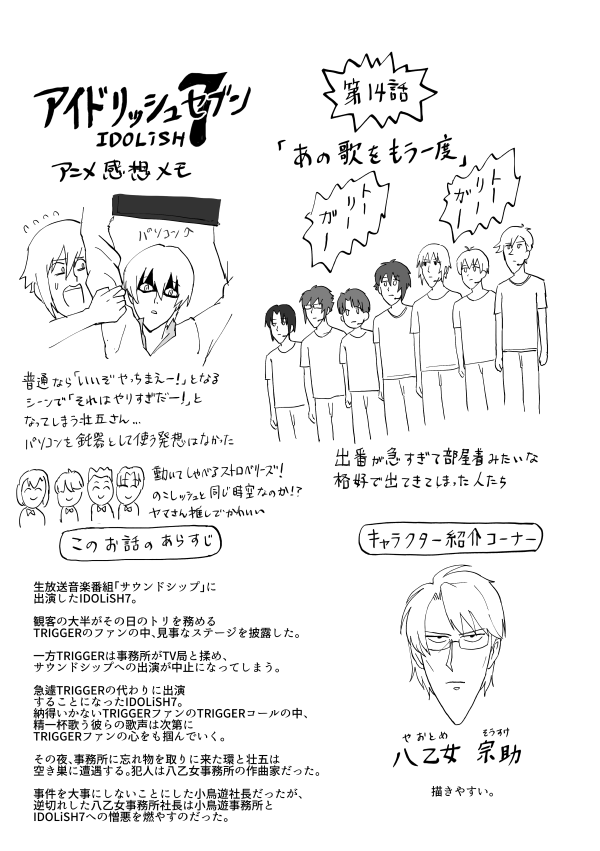 アイドリッシュセブン
7
IDOLiSH
アニメ感想メモ
第14話
「あの歌をもう一度」
トリガー
トリガー
パソコン
普通なら「いいぞやっちまえー!」となる
シーンで「それはやりすぎだー!」と
なってしまう壮五さん…
パソコンを鈍器として使う発想はなかった
動いてしゃべるストロベリーズ!
のこしッシュと同じ時空なのか!?
ヤマさん推しでかわいい
出番が急すぎて部屋着みたいな
格好で出てきてしまった人たち
このお話のあらすじ
生放送音楽番組「サウンドシップ」に
出演したIDOLiSH7。
観客の大半がその日のトリを務める
TRIGGERのファンの中、見事なステージを披露した。
一方TRIGGERは事務所がTV局と揉め、
サウンドシップへの出演が中止になってしまう。
急遽TRIGGERの代わりに出演
することになったIDOLiSH7。
納得いかないTRIGGERファンのTRIGGERコールの中、
精一杯歌う彼らの歌声は次第に
TRIGGERファンの心をも掴んでいく。
その夜、事務所に忘れ物を取りに来た環と壮五は
空き巣に遭遇する。犯人は八乙女事務所の作曲家だった。
事件を大事にしないことにした小鳥遊社長だったが、
逆切れした八乙女事務所社長は小鳥遊事務所と
IDOLiSH7への憎悪を燃やすのだった。
キャラクター紹介コーナー
やおとめ そうすけ
八乙女 宗助
描きやすい。